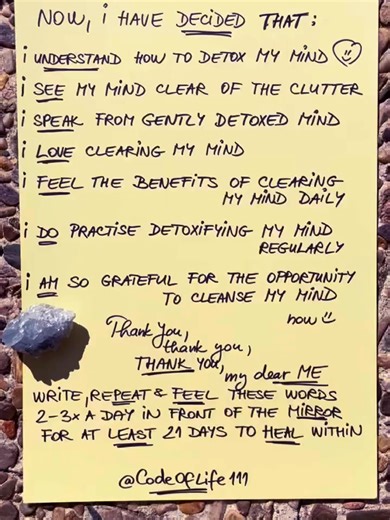 NOW, i HAVE DECIDED THAT:
i UNDERSTAND HOW TO DETOX MY MIND
i SEE MY MIND CLEAR OF THE CLUTTER
i SPEAK FROM GENTLY DETOXED MIND
i LOVE CLEARING MY MIND
i FEEL THE BENEFITS OF CLEARING
MY MIND DAILY
i DO PRACTISE DETOXIFYING MY MIND
REGULARLY
i AM SO GRATEFUL FOR THE OPPORTUNITY
TO CLEANSE MY MIND
now
Thank you,
thank you,
THANK YOU,
my dear ME
WRITE, REPEAT & FEEL THESE WORDS
2-3x A DAY IN FRONT OF THE MIRROR
FOR AT LEAST 21 DAYS TO HEAL WITHIN
@CodeOfLife111